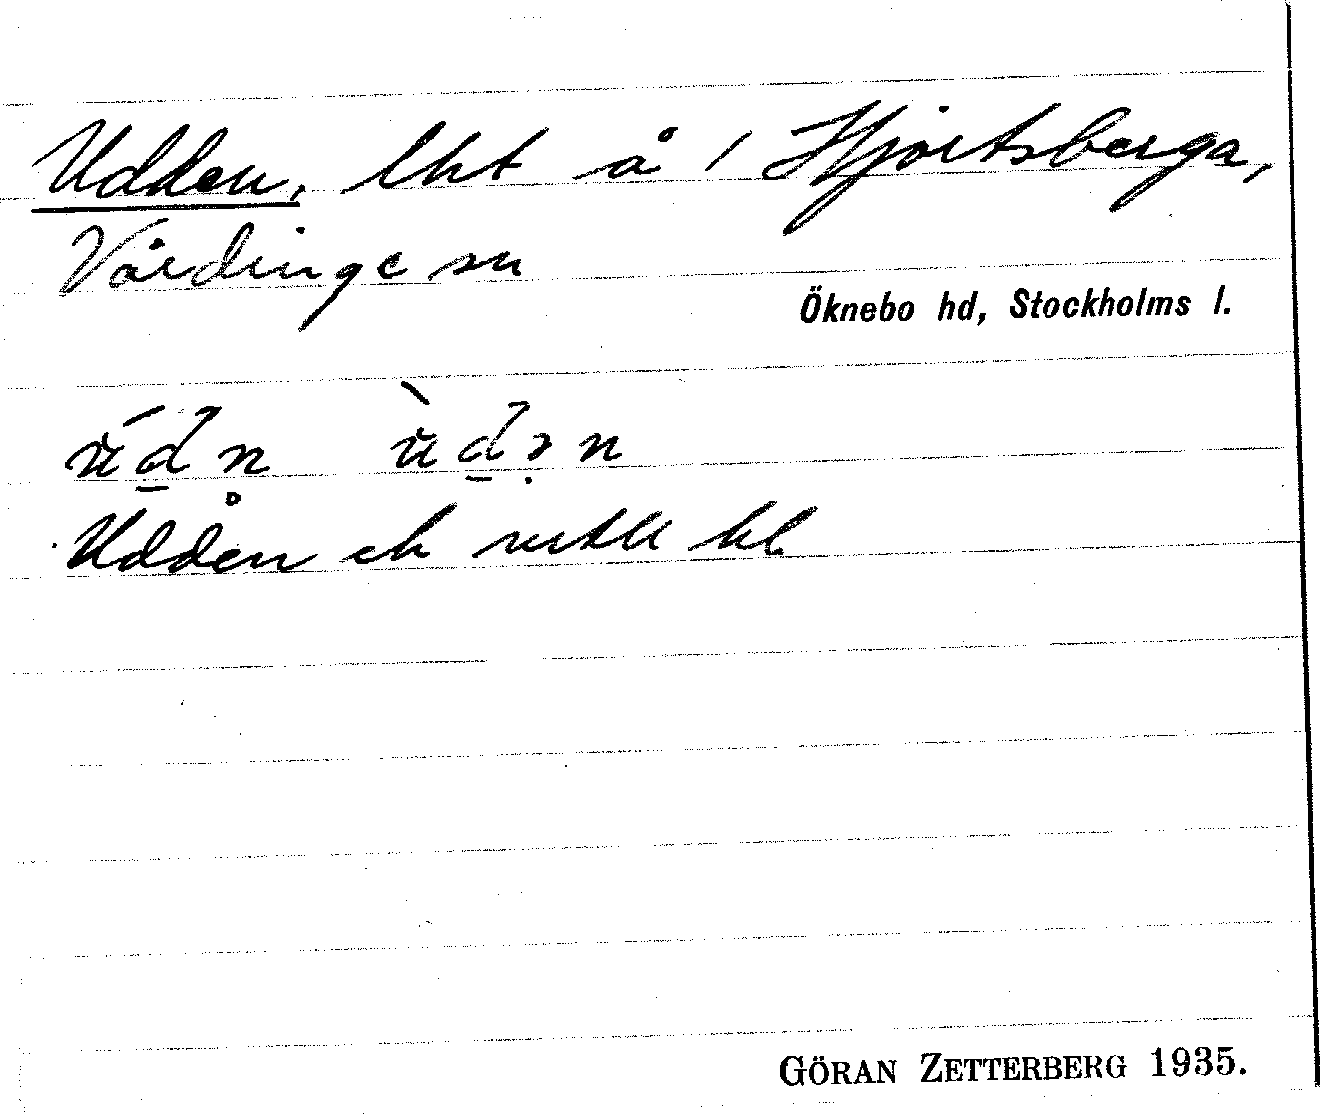 Udden, lht å / Hjortsberga,
Vårdinge sn
Öknebo hd, Stockholms l.
Udden ek
GÖRAN ZETTERBERG 1935.